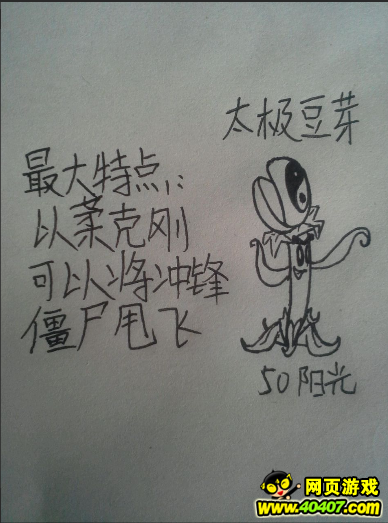 太极豆芽
最大特点:
以菜克刚
可以将冲锋
僵尸甩飞
50阳光
网页游戏
www.40407.com